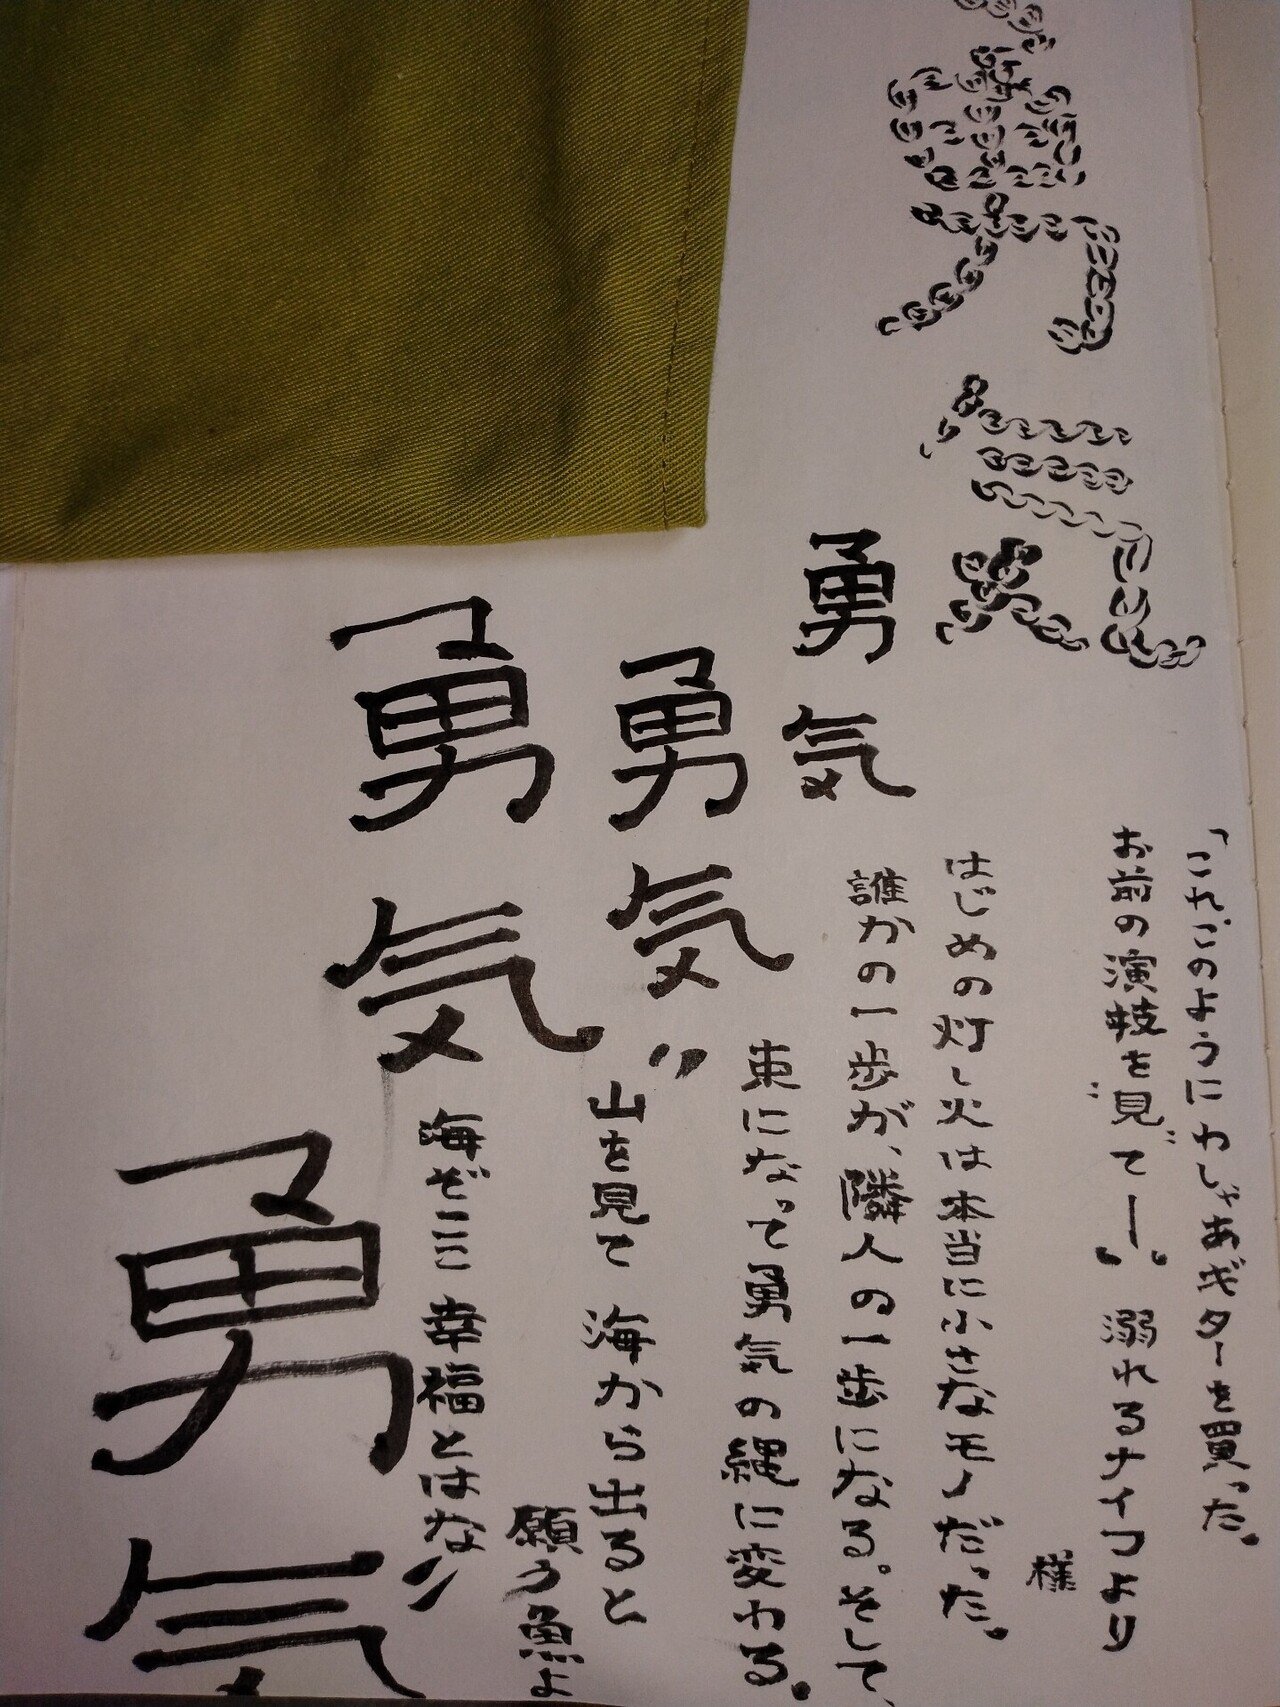 勇気
「これ、このようにわしゃあギターを買った。
お前の演技を見てー」 溺れるナイフより
様
はじめの灯し火は本当に小さなモノだった。
誰かの一歩が、隣人の一歩になる。そして、
束になって勇気の縄に変わる。
勇気
勇気
山を見て 海から出ると
願う魚よ
勇気
海ぞここ 幸福とはな
勇気